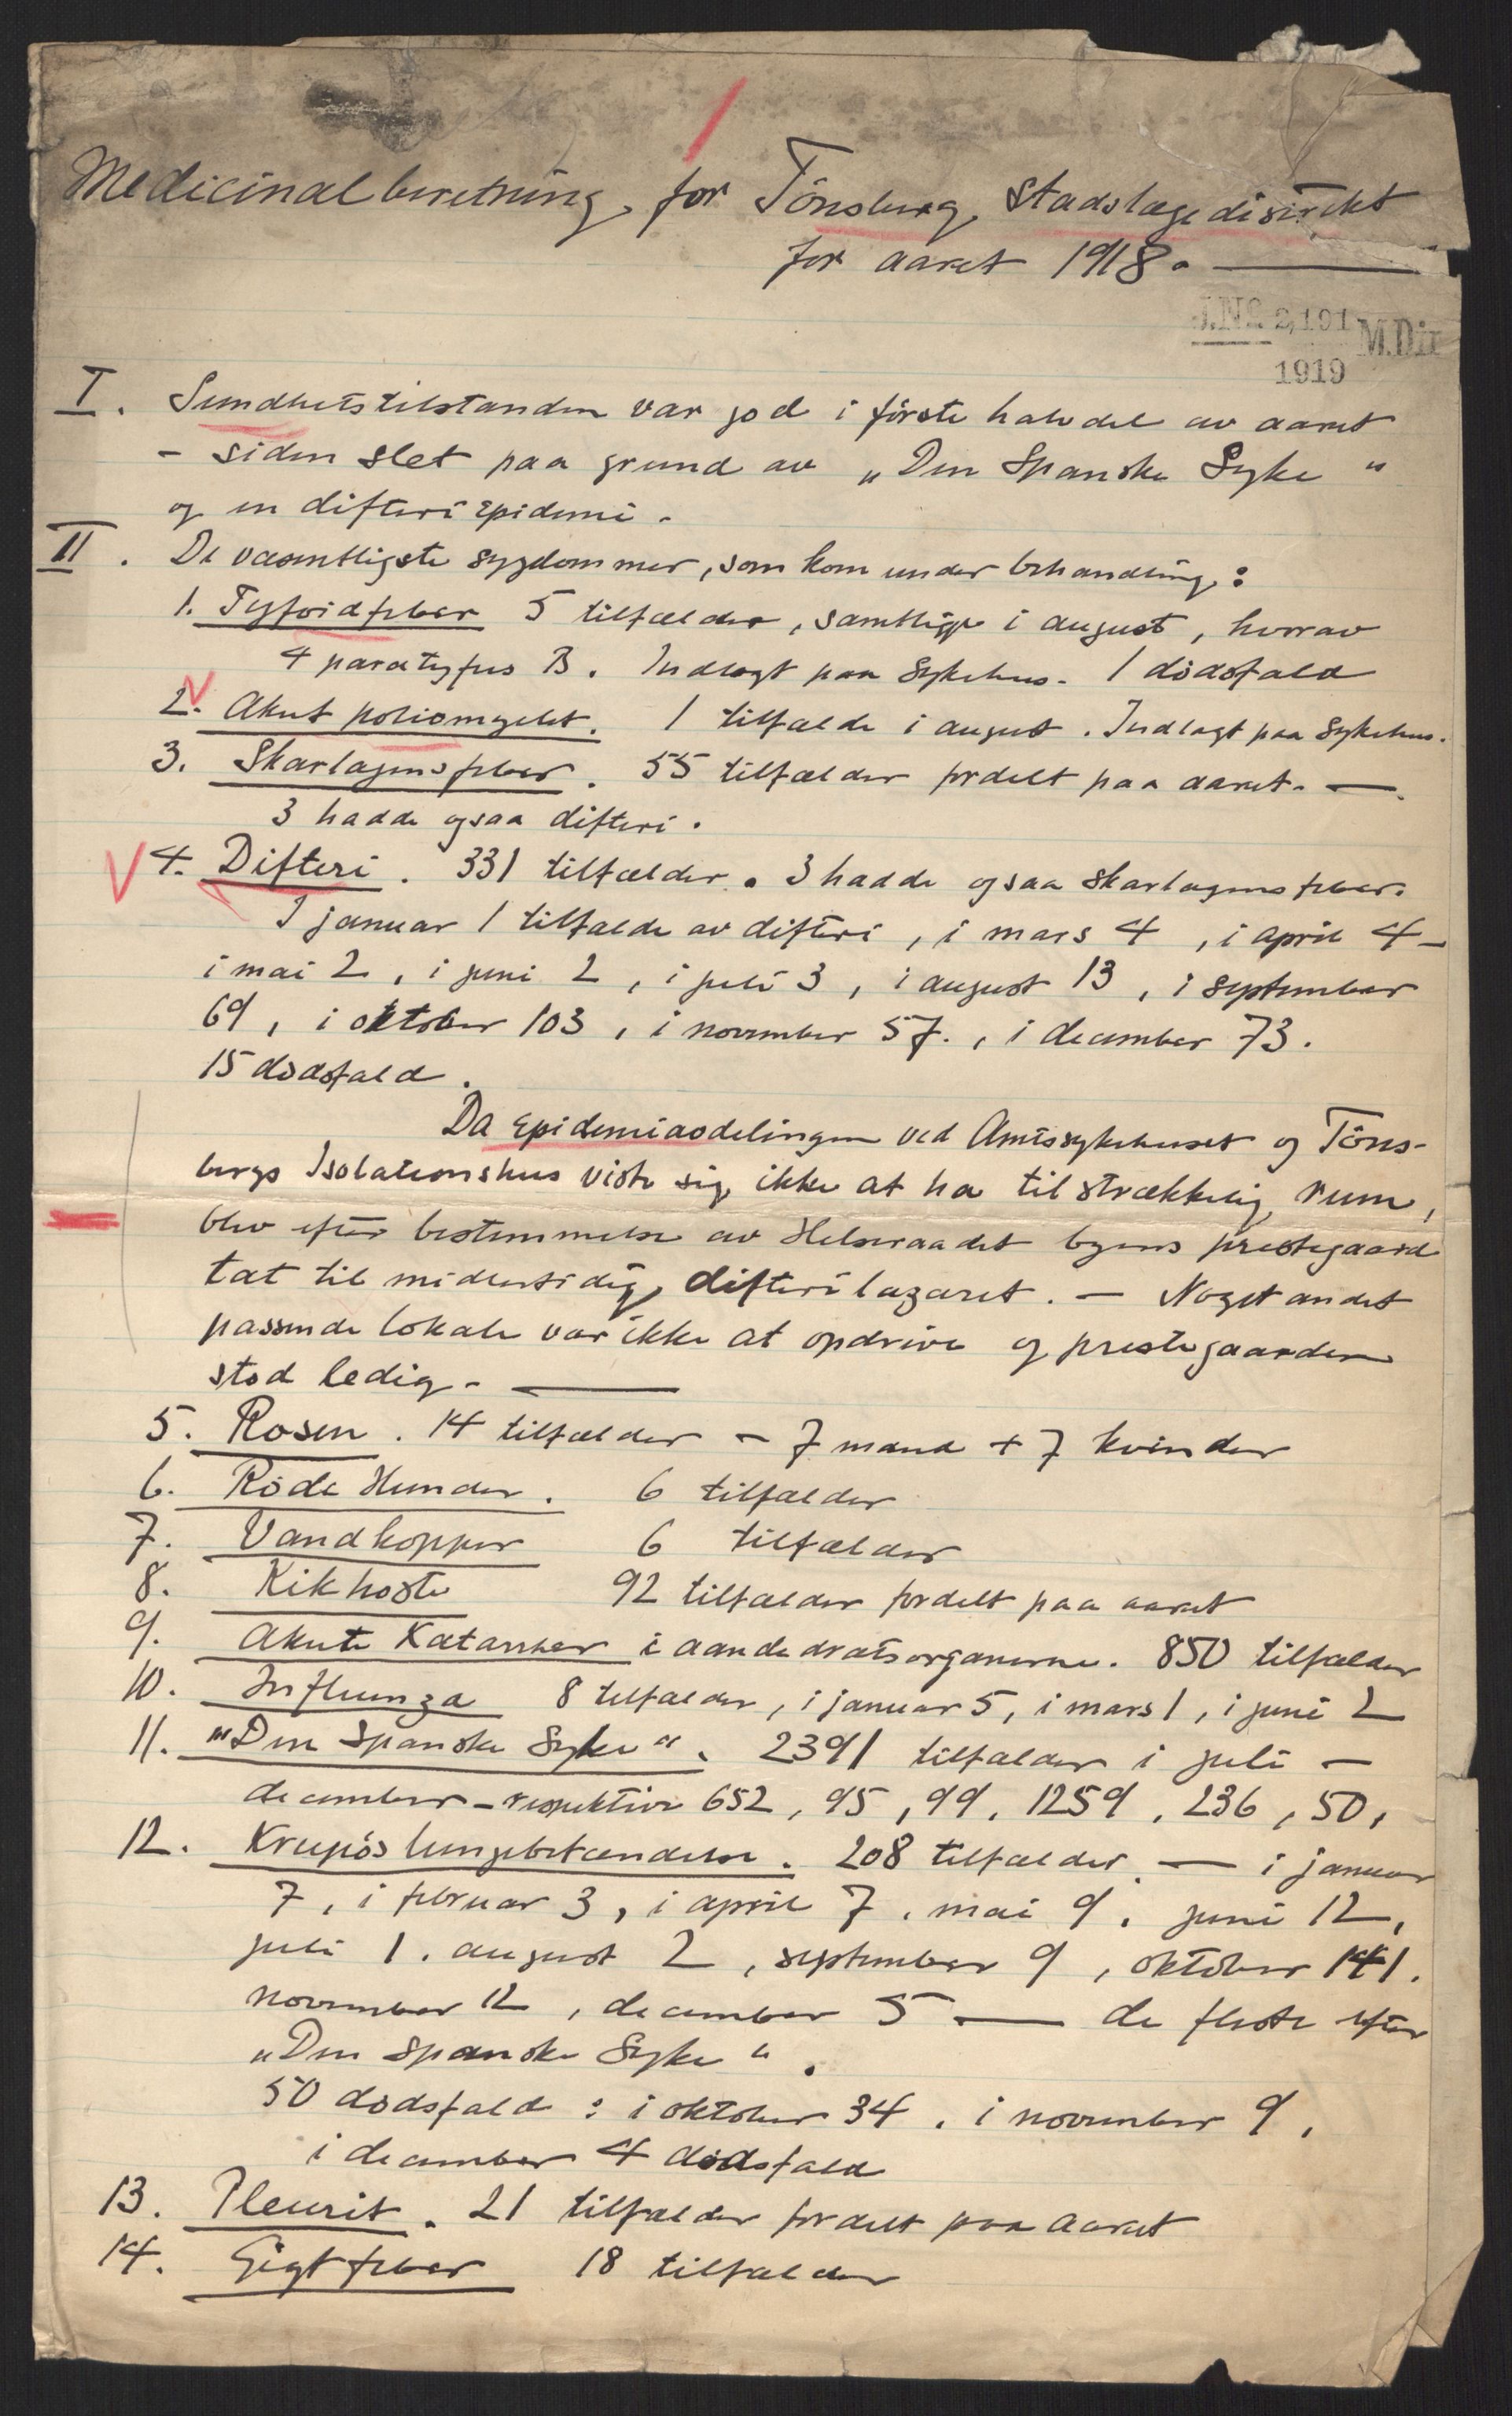 Medicinalberetning for Tönsberg Stadslægedistrikt
for aaret 1918. —
J.No. 2,191 M.Dir
1919
I. Sundhetstilstanden var god i förste halvdel av aaret
- siden slet paa grund av „Den Spanske Syke“
og en difteriepidemi.
II. De væsentligste sygdommer, som kom under behandling:
1. Tyfoidfeber 5 tilfælder, samtlige i august, hvorav
4 paratyfus B. Indlagt paa Sykehus. 1 dödsfald
2. Akut poliomyelit. 1 tilfælde i august. Indlagt paa Sykehus.
3. Skarlagensfeber. 55 tilfælder fordelt paa aaret. —
3 hadde ogsaa difteri.
4. Difteri. 331 tilfælder. 3 hadde ogsaa skarlagensfeber.
I januar 1 tilfælde av difteri, i mars 4, i april 4 -
i mai 2, i juni 2, i juli 3, i august 13, i september
69, i oktober 103, i november 57., i december 73.
15 dödsfald.
Da Epidemiavdelingen ved Amtssykehuset og Töns-
bergs Isolationshus viste sig ikke at ha tilstrækkelig rum,
blev efter bestemmelse av Helseraadet byens prestegaard
tat til midlertidig difterilazaret. — Noget andet
passende lokale var ikke at opdrive og prestegaarden
stod ledig. —
5. Rosen. 14 tilfælder - 7 mænd + 7 kvinder
6. Röde Hunder. 6 tilfælder
7. Vandkopper 6 tilfælder
8. Kikhoste 92 tilfælder fordelt paa aaret
9. Akute Katarrher i aandedrætsorganerne. 850 tilfælder
10. Influenza 8 tilfælder, i januar 5, i mars 1, i juni 2
11. „Den Spanske Syke“. 2391 tilfælder i juli —
december - respektive 652, 95, 99, 1259, 236, 50,
12. Krupös lungebetændelse. 208 tilfælder. — i januar
7, i februar 3, i april 7, mai 9, juni 12,
juli 1, august 2, september 9, oktober 141,
november 12, december 5 — de fleste efter
„Den Spanske Syke“.
50 dödsfald: i oktober 34, i november 9,
i december 4 dödsfald
13. Pleurit. 21 tilfælder fordelt paa aaret
14. Gigtfeber 18 tilfælder